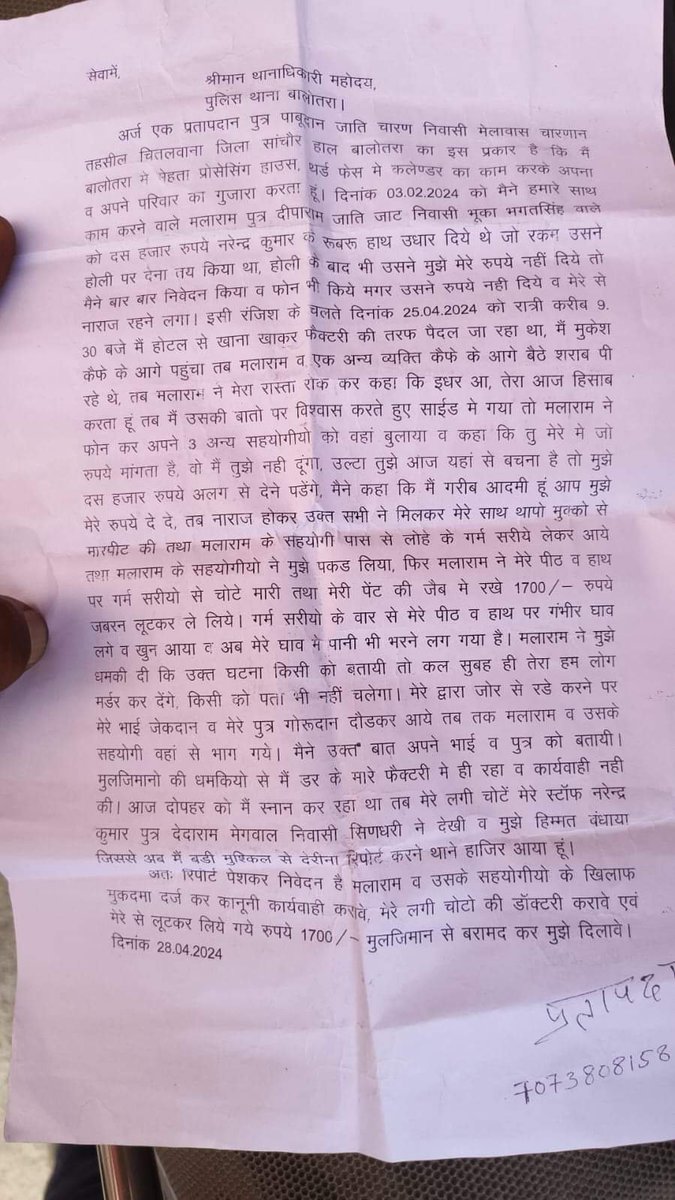 सेवामें,
श्रीमान थानाधिकारी महोदय,
पुलिस थाना बालोतरा।
अर्ज एक प्रतापदान पुत्र पाबूदान जाति चारण निवासी मेलावास चारणान
तहसील चितलवाना जिला सांचौर हाल बालोतरा का इस प्रकार है कि मैं
बालोतरा मे मेहता प्रोसेसिंग हाउस, थर्ड फेस मे कलेण्डर का काम करके अपना
व अपने परिवार का गुजारा करता हूं। दिनांक 03.02.2024 को मैने हमारे साथ
काम करने वाले मलाराम पुत्र दीपाराम जाति जाट निवासी भूका भगतसिंह वाले
को दस हजार रुपये नरेन्द्र कुमार के रूबरू हाथ उधार दिये थे जो रकम उसने
होली पर देना तय किया था, होली के बाद भी उसने मुझे मेरे रुपये नहीं दिये तो
मैने बार बार निवेदन किया व फोन भी किये मगर उसने रुपये नही दिये व मेरे से
नाराज रहने लगा। इसी रंजिश के चलते दिनांक 25.04.2024 को रात्री करीब 9.
30 बजे मैं होटल से खाना खाकर फैक्टरी की तरफ पैदल जा रहा था, मैं मुकेश
कैफे के आगे पहुंचा तब मलाराम व एक अन्य व्यक्ति कैफे के आगे बैठे शराब पी
रहे थे, तब मलाराम ने मेरा रास्ता रोक कर कहा कि इधर आ, तेरा आज हिसाब
करता हूं तब मैं उसकी बातो पर विश्वास करते हुए साईड मे गया तो मलाराम ने
फोन कर अपने 3 अन्य सहयोगीयो को वहां बुलाया व कहा कि तु मेरे मे जो
रुपये मांगता है, वो मैं तुझे नही दूंगा, उल्टा तुझे आज यहां से बचना है तो मुझे
दस हजार रुपये अलग से देने पडेंगे, मैने कहा कि मैं गरीब आदमी हूं आप मुझे
मेरे रुपये दे दे, तब नाराज होकर उक्त सभी ने मिलकर मेरे साथ थापो मुक्को से
मारपीट की तथा मलाराम के सहयोगी पास से लोहे के गर्म सरीये लेकर आये
तथा मलाराम के सहयोगीयो ने मुझे पकड लिया, फिर मलाराम ने मेरे पीठ व हाथ
पर गर्म सरीयो से चोटे मारी तथा मेरी पेंट की जेब मे रखे 1700/- रुपये
जबरन लूटकर ले लिये। गर्म सरीयो के वार से मेरे पीठ व हाथ पर गंभीर घाव
लगे व खुन आया व अब मेरे घाव मे पानी भी भरने लग गया है। मलाराम ने मुझे
धमकी दी कि उक्त घटना किसी को बतायी तो कल सुबह ही तेरा हम लोग
मर्डर कर देंगे, किसी को पता भी नहीं चलेगा। मेरे द्वारा जोर से रडे करने पर
मेरे भाई जेकदान व मेरे पुत्र गोरूदान दौडकर आये तब तक मलाराम व उसके
सहयोगी वहां से भाग गये। मैने उक्त बात अपने भाई व पुत्र को बतायी।
मुलजिमानो की धमकियो से मैं डर के मारे फैक्टरी मे ही रहा व कार्यवाही नही
की। आज दोपहर को मैं स्नान कर रहा था तब मेरे लगी चोटें मेरे स्टॉफ नरेन्द्र
कुमार पुत्र देदाराम मेगवाल निवासी सिणधरी ने देखी व मुझे हिम्मत बंधाया
जिससे अब मैं बडी मुश्किल से देरीना रिपोर्ट करने थाने हाजिर आया हूं।
अतः रिपोर्ट पेशकर निवेदन है मलाराम व उसके सहयोगीयो के खिलाफ
मुकदमा दर्ज कर कानूनी कार्यवाही करावे, मेरे लगी चोटो की डॉक्टरी करावे एवं
मेरे से लूटकर लिये गये रुपये 1700/- मुलजिमान से बरामद कर मुझे दिलावे।
दिनांक 28.04.2024
प्रतापद
7073808158